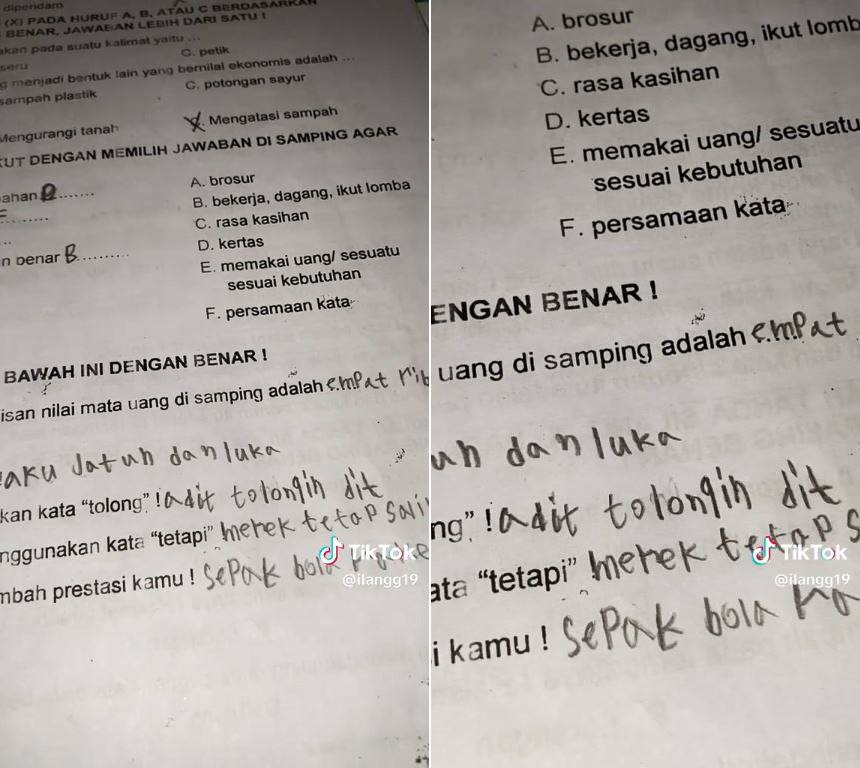 dipendam
(X) PADA HURUF A, B, ATAU C BERDASARKAN
BENAR, JAWABAN LEBIH DARI SATU !
akan pada suatu kalimat yaitu ...
seru
C. petik
g menjadi bentuk lain yang bernilai ekonomis adalah ...
sampah plastik
C. potongan sayur
Mengurangi tanah
Mengatasi sampah
KUT DENGAN MEMILIH JAWABAN DI SAMPING AGAR
ahan ........
A. brosur
B. bekerja, dagang, ikut lomba
C. rasa kasihan
D. kertas
n benar B..........
E. memakai uang/ sesuatu
sesuai kebutuhan
F. persamaan kata
BAWAH INI DENGAN BENAR !
isan nilai mata uang di samping adalah empat rib
aku Jatuh dan luka
kan kata “tolong” ! adit tolongin dit
nggunakan kata “tetapi” merek tetap
mbah prestasi kamu ! sepak bola
TikTok
@ilangg19
A. brosur
B. bekerja, dagang, ikut lomb
C. rasa kasihan
D. kertas
E. memakai uang/ sesuatu
sesuai kebutuhan
F. persamaan kata
ENGAN BENAR !
uang di samping adalah empat
uh dan luka
ng” ! adit tolongin dit
ata “tetapi” merek tetap s
i kamu ! sepak bola
TikTok
@ilangg19